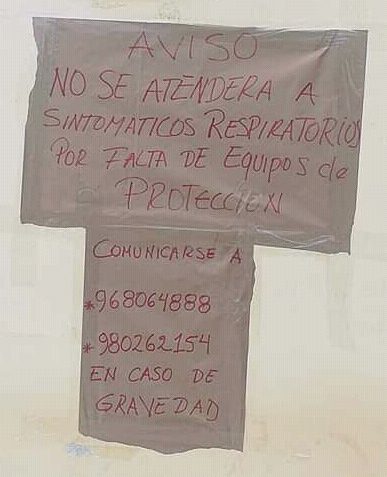 AVISO
NO SE ATENDERA A
SINTOMATICOS RESPIRATORIOS
POR FALTA DE EQUIPOS de
PROTECCION
COMUNICARSE A
*968064888
*980262154
EN CASO DE
GRAVEDAD